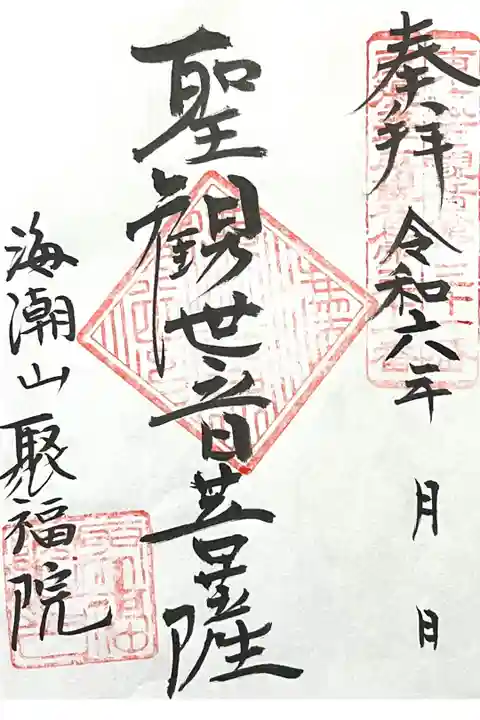 奉拜 令和六年 月 日
聖観世音菩薩
海潮山聚福院